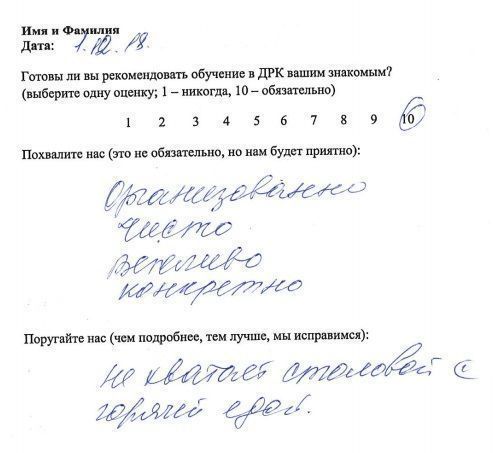 Имя и Фамилия
Дата: 1.12.18.
Готовы ли вы рекомендовать обучение в ДРК вашим знакомым?
(выберите одну оценку; 1 – никогда, 10 – обязательно)
1 2 3 4 5 6 7 8 9 10
Похвалите нас (это не обязательно, но нам будет приятно):
Организованно
Чисто
Вежливо
конкретно
Поругайте нас (чем подробнее, тем лучше, мы исправимся):
не хватает столовой с
горячей едой.